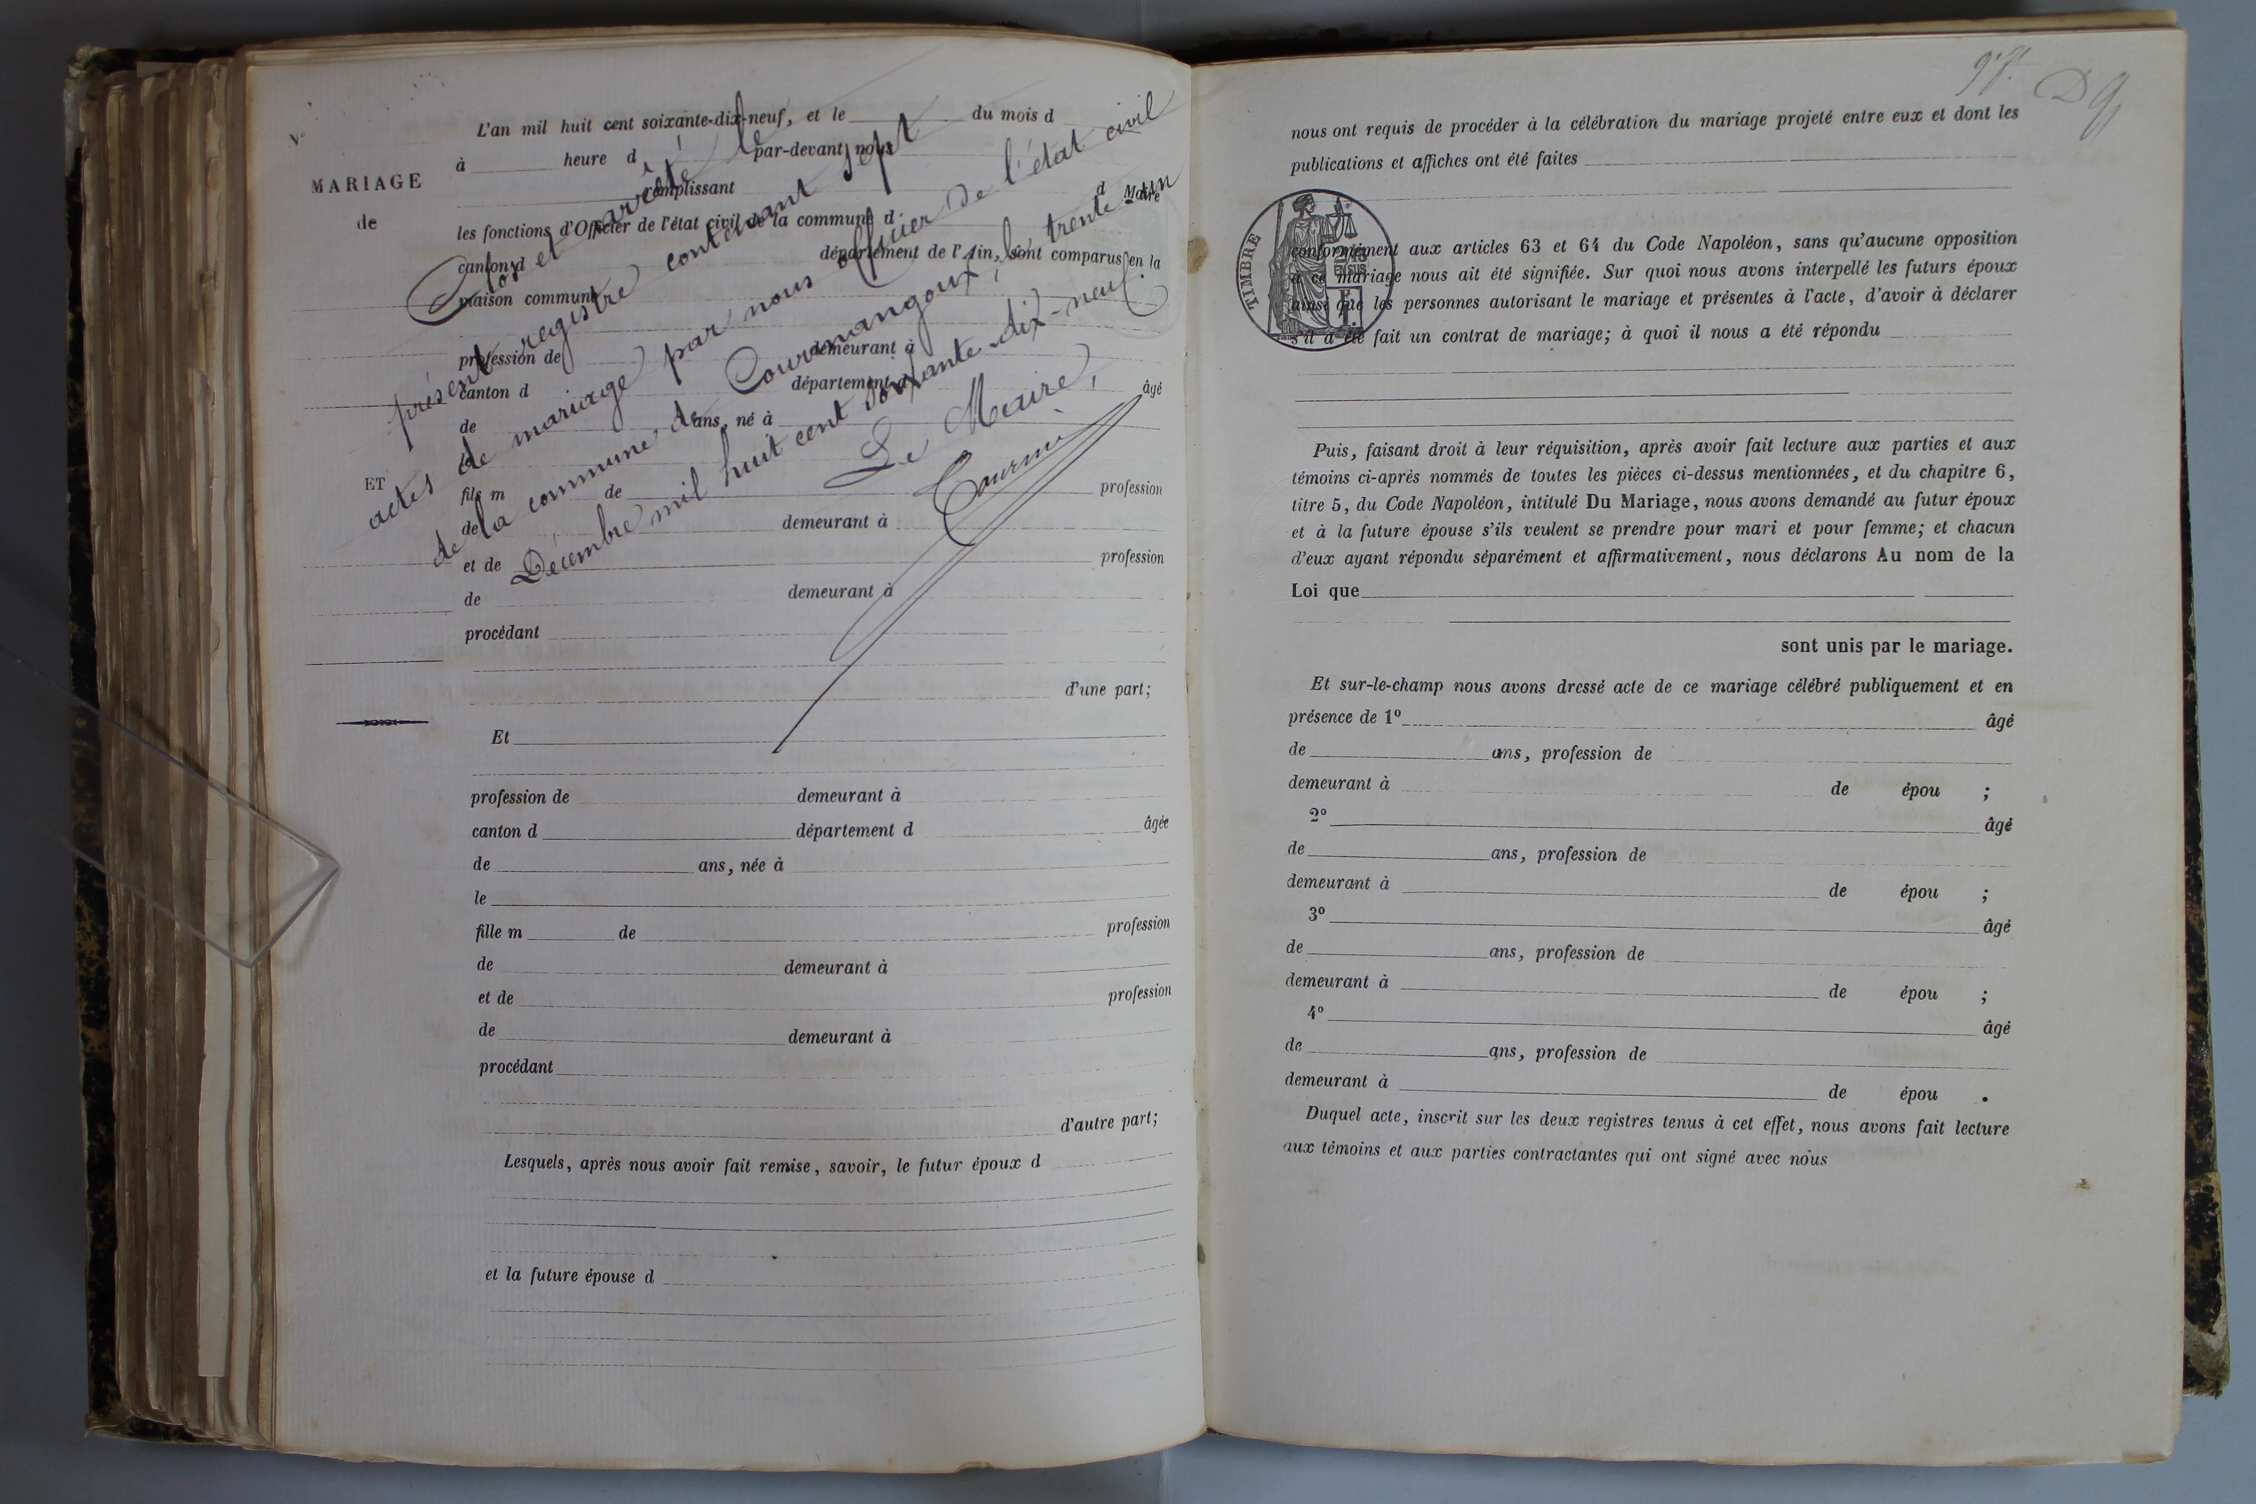 MARIAGE
de
ET
L'an mil huit cent soixante-dix-neuf, et le du mois d
à heure d par-devant nous
remplissant
les fonctions d'Officier de l'état civil de la commune d
canton d département de l'Ain, sont comparus en la
maison commune
profession de demeurant à
canton d département d âgé
de ans, né à
le
fils m de profession
de demeurant à
et de profession
de demeurant à
procédant
d'une part;
Et
profession de demeurant à
canton d département d âgée
de ans, née à
le
fille m de profession
de demeurant à
et de profession
de demeurant à
procédant
d'autre part;
Lesquels, après nous avoir fait remise, savoir, le futur époux d
et la future épouse d
Clos et arrêté le
présent registre contenant sept
actes de mariage par nous officier de l'état civil
de la commune de Courmangoux, le trente-un
Décembre mil huit cent soixante-dix-neuf.
Le Maire,
97.
nous ont requis de procéder à la célébration du mariage projeté entre eux et dont les
publications et affiches ont été faites
TIMBRE
conformément aux articles 63 et 64 du Code Napoléon, sans qu'aucune opposition
à ce mariage nous ait été signifiée. Sur quoi nous avons interpellé les futurs époux
ainsi que les personnes autorisant le mariage et présentes à l'acte, d'avoir à déclarer
s'il a été fait un contrat de mariage; à quoi il nous a été répondu
Puis, faisant droit à leur réquisition, après avoir fait lecture aux parties et aux
témoins ci-après nommés de toutes les pièces ci-dessus mentionnées, et du chapitre 6,
titre 5, du Code Napoléon, intitulé Du Mariage, nous avons demandé au futur époux
et à la future épouse s'ils veulent se prendre pour mari et pour femme; et chacun
d'eux ayant répondu séparément et affirmativement, nous déclarons Au nom de la
Loi que
sont unis par le mariage.
Et sur-le-champ nous avons dressé acte de ce mariage célébré publiquement et en
présence de 1º âgé
de ans, profession de
demeurant à de épou ;
2º âgé
de ans, profession de
demeurant à de épou ;
3º âgé
de ans, profession de
demeurant à de épou ;
4º âgé
de ans, profession de
demeurant à de épou .
Duquel acte, inscrit sur les deux registres tenus à cet effet, nous avons fait lecture
aux témoins et aux parties contractantes qui ont signé avec nous